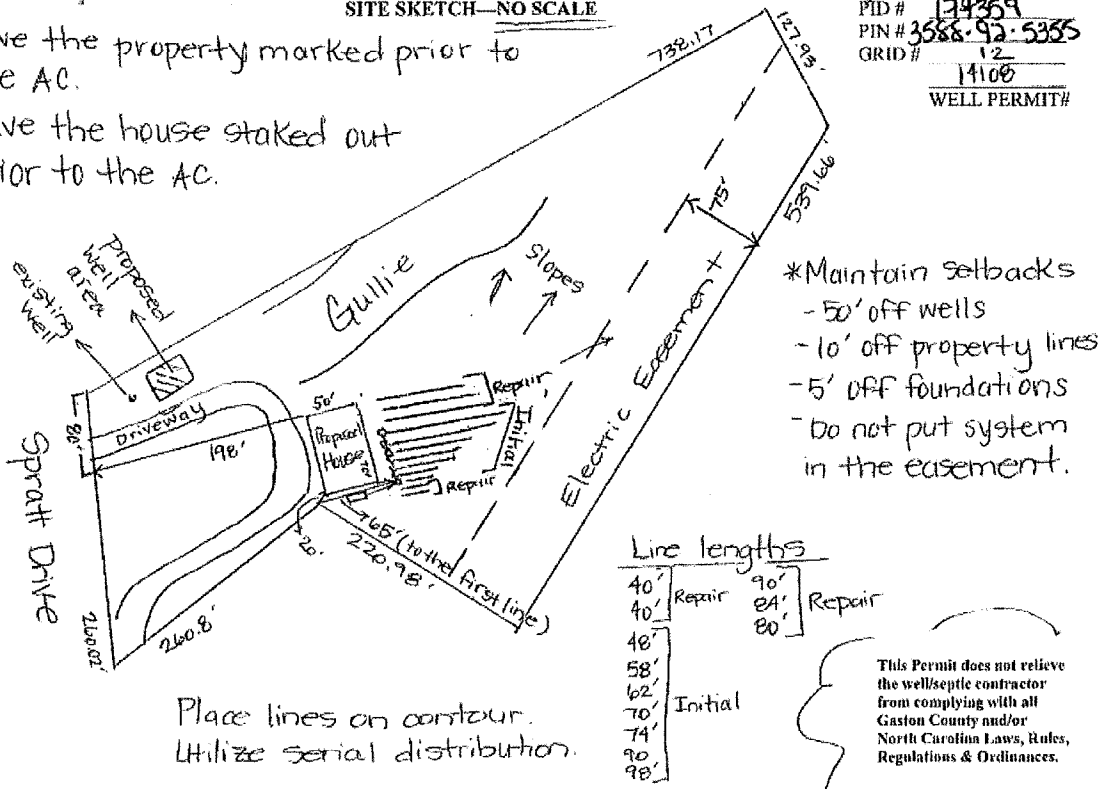 SITE SKETCH—NO SCALE
PID # 179359
PIN # 3588.92.5355
GRID # 12
14108
WELL PERMIT#
ve the property marked prior to
e AC.
ve the house staked out
ior to the AC.
738.17
127.93'
539.66'
75'
Slopes
Gullie
Electric Easement
existing
well
proposed
well
area
Driveway
80'
198'
50'
Proposed
House
70'
Repair
Initial
Repair
20'
65' (to the first line)
220.98'
260.8'
260.02'
Spratt Drive
*Maintain setbacks
- 50' off wells
- 10' off property lines
- 5' off foundations
- Do not put system
in the easement.
Line lengths
40' 90'
40' Repair 84' Repair
80'
48'
58'
62'
70' Initial
74'
90
98'
Place lines on contour.
Utilize serial distribution.
This Permit does not relieve
the well/septic contractor
from complying with all
Gaston County and/or
North Carolina Laws, Rules,
Regulations & Ordinances.